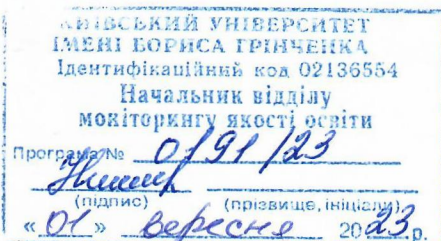 КИЇВСЬКИЙ УНІВЕРСИТЕТ
ІМЕНІ БОРИСА ГРІНЧЕНКА
Ідентифікаційний код 02136554
Начальник відділу
моніторингу якості освіти
Програма № 0191/23
(підпис) (прізвище, ініціали)
« 01 » вересня 2023 р.